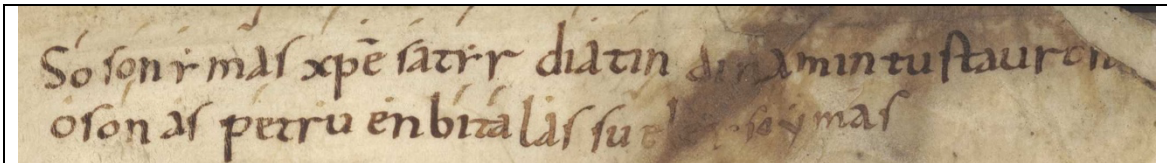 Soson ymas xpē satir diatin dinamin tu stauron
oson as petru en bitalas su eleison ymas